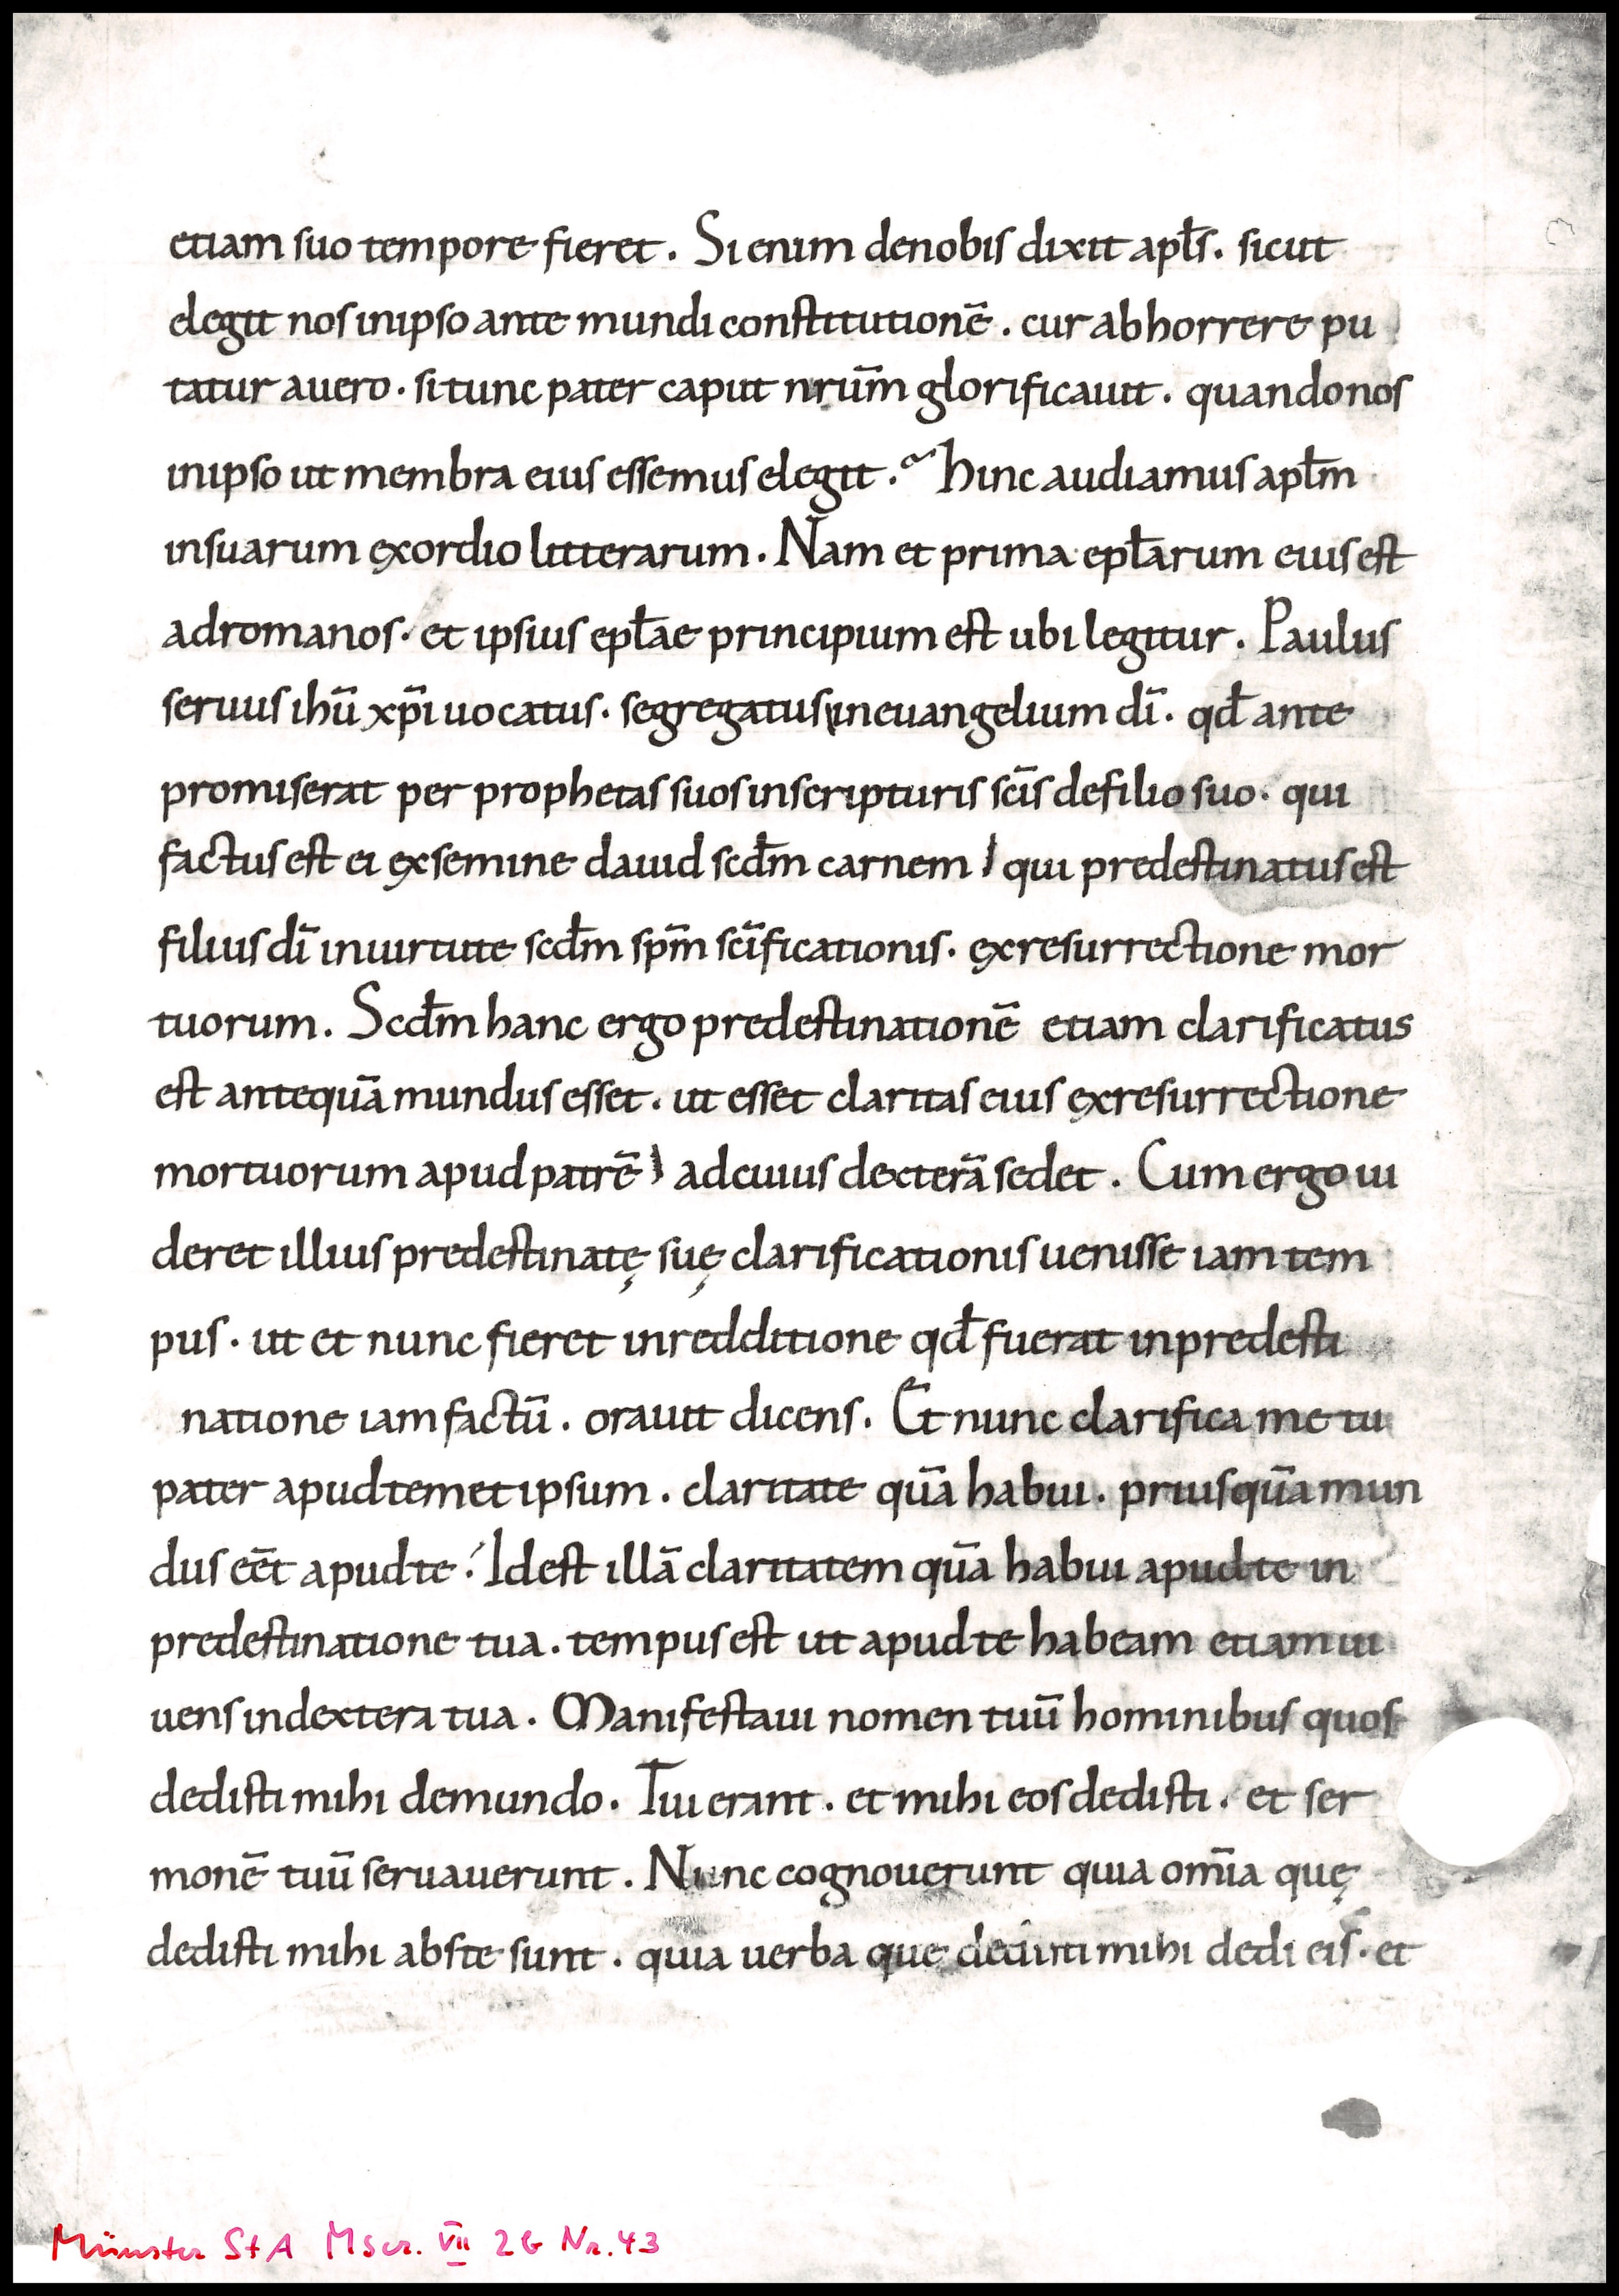 etiam suo tempore fieret. Si enim denobis dixit apƚs. sicut
elegit nos inipso ante mundi constitutionē. cur abhorrere pu
tatur auero. si tunc pater caput nrūm glorificauit. quandonos
inipso ut membra eius essemus elegit. hinc audiamus apƚm
insuarum ęxordio litterarum. Nam et prima epƚarum eius est
adromanos. et ipsius epƚae principium est ubi legitur. Paulus
seruus ihū xp̄i uocatus. segregatus ineuangelium dī. qđ ante
promiserat per prophetas suos inscripturis sc̄is defilio suo. qui
factus est ei ęxsemine dauid scđm carnem qui predestinatus est
filius dī inuirtute scđm sp̄m sc̄ificationis. ęxresurrectione mor
tuorum. Scđm hanc ergo predestinationē etiam clarificatus
est antequā mundus esset. ut esset claritas eius ęxresurrectione
mortuorum apud patrē adcuius dexterā sedet. Cum ergo ui
deret illius predestinatę suę clarificationis uenisse iam tem
pus. ut et nunc fieret inredditione qđ fuerat inpredesti
natione iam factū. orauit dicens. Et nunc clarifica me tu
pater apud temet ipsum. claritate quā habui. priusquā mun
dus eēt apud te. Idest illā claritatem quā habui apud te in
predestinatione tua. tempus est ut apud te habeam etiam ui
uens indextera tua. Manifestaui nomen tuū hominibus quos
dedisti mihi demundo. Tui erant. et mihi eos dedisti. et ser
monē tuū seruauerunt. Nunc cognouerunt quia om̄ia quę
dedisti mihi abste sunt. quia uerba que dedisti mihi dedi eis. et
Münster StA Mscr. VII 2G Nr. 43